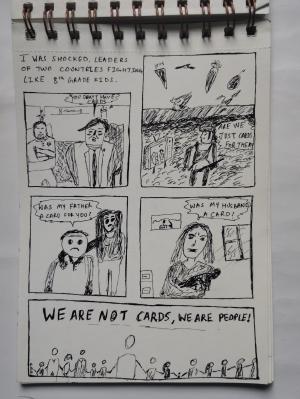 I WAS SHOCKED, LEADERS
OF TWO COUNTRIES FIGHTING
LIKE 8TH GRADE KIDS.
YOU DON'T HAVE
CARDS
ARE WE
JUST CARDS
FOR THEM?
WAS MY FATHER
A CARD FOR YOU?
WAS MY HUSBAND
A CARD?
WE ARE NOT CARDS, WE ARE PEOPLE!